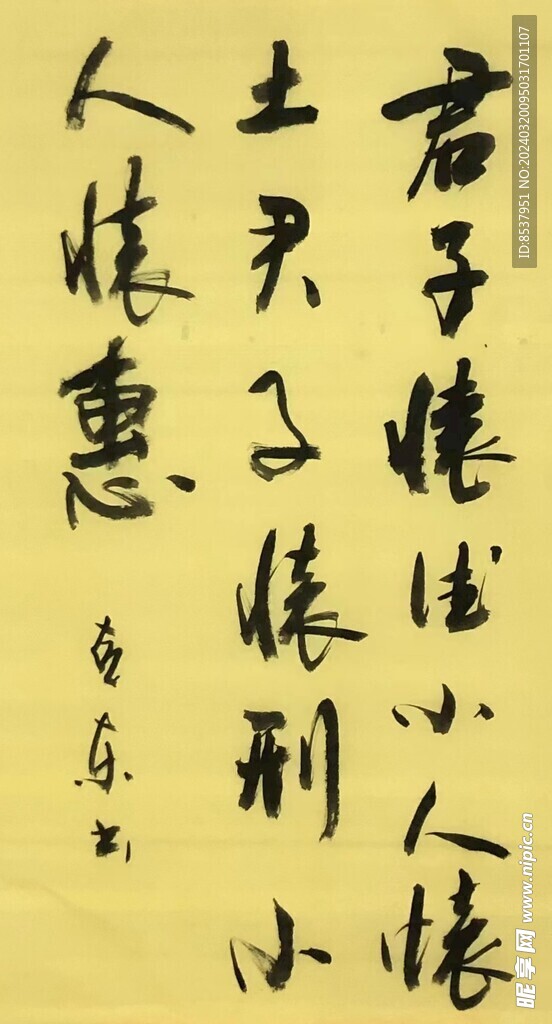 君子懐德小人懐
土君子懐刑小
人懐惠
东书
ID:8537951 NO:20240320095031701107
昵享网 www.nipic.cn